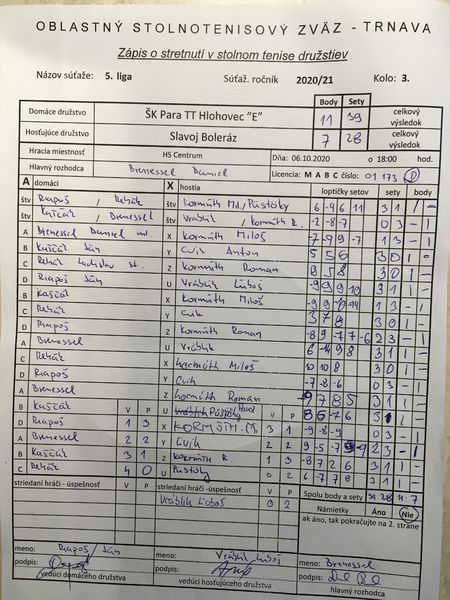 OBLASTNÝ STOLNOTENISOVÝ ZVÄZ - TRNAVA
Zápis o stretnutí v stolnom tenise družstiev
Názov súťaže: 5. liga Súťaž. ročník 2020/21 Kolo: 3.
Body Sety
Domáce družstvo ŠK Para TT Hlohovec "E" 11 39 celkový výsledok
Hosťujúce družstvo Slavoj Boleráz 7 28 celkový výsledok
Hracia miestnosť HS Centrum Dňa: 06.10.2020 o 18:00 hod.
Hlavný rozhodca Brenessel Daniel Licencia: M A B C číslo: 01 173 D
A domáci X hostia loptičky setov sety body
štv Rapoš / Rehák štv Kormúth Ml./Púštóky 6 -4 6 11 3 1 1 -
štv Kaščár / Brenessel štv Vráblik / Kormúth R. -2 -8 -7 0 3 - 1
A Brenessel Daniel ml. X Kormúth Miloš -7 -9 9 -7 1 3 - 1
B Kaščár Ján Y Cvik Anton 5 5 6 3 0 1 -
C Rehák Ladislav st. Z Kormúth Roman 8 5 8 3 0 1 -
D Rapoš Ján U Vráblik Ľuboš 3 1 1 -
B Kaščár X Kormúth Miloš 1 3 - 1
C Rehák Y Cvik 3 7 8 3 0 1 -
D Rapoš Z Kormúth Roman -8 9 -7 7 -6 2 3 - 1
A Brenessel U Vráblik 3 1 1 -
C Rehák X Kormúth Miloš 10 10 8 3 0 1 -
D Rapoš Y Cvik -7 -8 -6 0 3 - 1
A Brenessel Z Kormúth Roman -9 7 8 5 3 1 1 -
B Kaščár V P U Púštóky Pavol V P 8 6 -7 6 3 1 1 -
D Rapoš 1 3 X KORMÚTH M. 3 1 -9 -8 -9 0 3 - 1
A Brenessel 2 2 Y Cvik 2 2 2 3 - 1
B Kaščár 3 1 Z Kormúth R 1 3 -8 7 2 6 3 1 1 -
C Rehák 4 0 U Púštóky 0 2 6 -7 7 8 3 1 1 -
striedaní hráči - úspešnosť V P striedaní hráči -úspešnosť V P Spolu body a sety 39 28 11 7
Vráblik Ľuboš 0 2 Námietky Áno Nie
ak áno, tak pokračujte na 2. strane
meno: Rapoš Ján meno: Vráblik Ľuboš meno: Brenessel
podpis: podpis: podpis:
vedúci domáceho družstva vedúci hosťujúceho družstva hlavný rozhodca